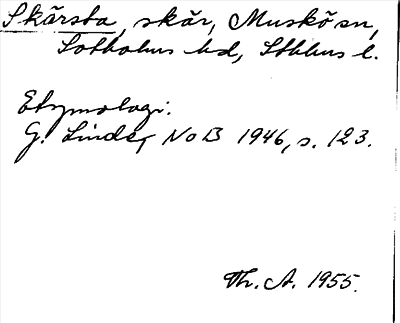 Skärsta, skär, Muskö sn,
Sotholms hd, Sthlms l.
Etymologi:
G. Linde, NoB 1946, s. 123.
Th. A. 1955.